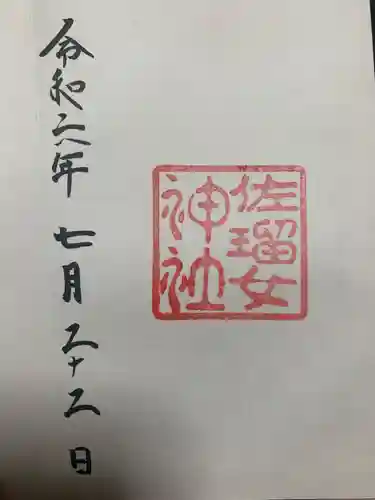 佐瑠女
神社
令和六年七月二十二日